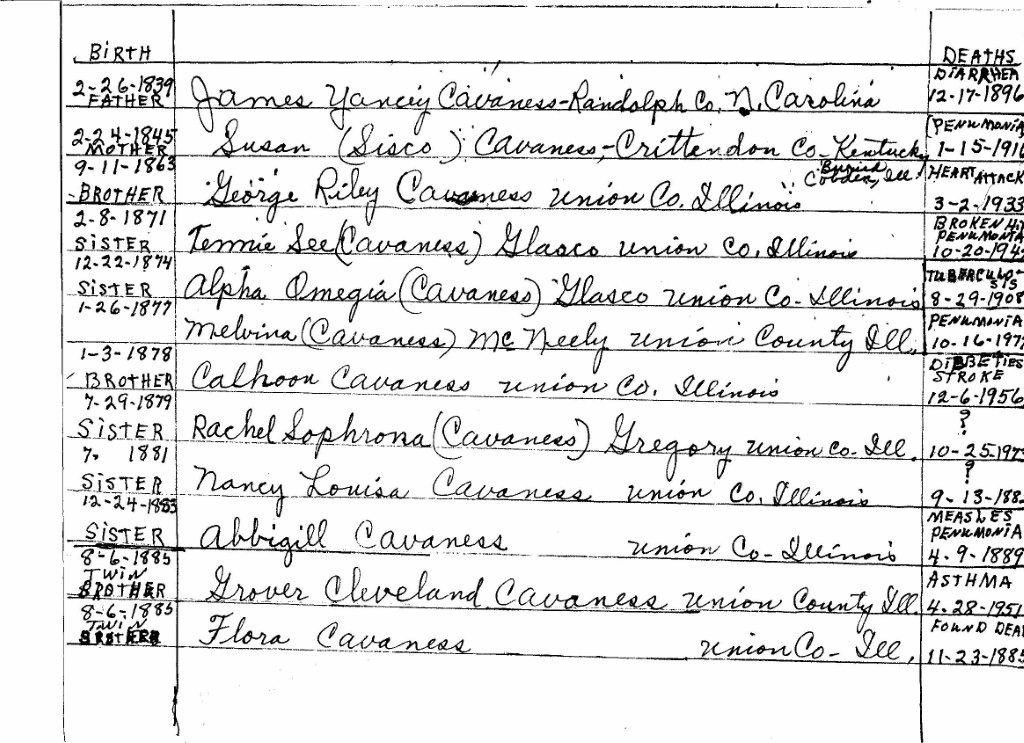 BIRTH DEATHS
2-26-1839 DIARRHEA
FATHER James Yancey Cavaness-Randolph Co. N. Carolina 12-17-1896
2-24-1845 PENUMONIA
MOTHER Susan (Sisco) Cavaness-Crittendon Co-Kentucky 1-15-1916
9-11-1863 Buried Cobden, Ill. HEART ATTACK
BROTHER George Riley Cavaness Union Co. Illinois 3-2-1933
2-8-1871 BROKEN
SISTER Tennie See (Cavaness) Glasco Union Co. Illinois PENUMONIA 10-20-194
12-22-1874 TUBERCULOSIS
SISTER Alpha Omegia (Cavaness) Glasco Union Co. Illinois 8-29-1908
1-26-1877 PENUMONIA
Melvina (Cavaness) McNeely Union County Ill. 10-16-197
1-3-1878 DIBBETIES STROKE
BROTHER Calhoon Cavaness Union Co. Illinois 12-6-1956
7-29-1879 ?
SISTER Rachel Sophrona (Cavaness) Gregory Union Co. Ill. 10-25-197
7- 1881 ?
SISTER Nancy Louisa Cavaness Union Co. Illinois 9-13-188
12-24-1883 MEASLES PENUMONIA
SISTER Abbigill Cavaness Union Co- Illinois 4-9-1889
8-6-1885 ASTHMA
TWIN BROTHER Grover Cleveland Cavaness Union County Ill. 4-28-1951
8-6-1885 FOUND DEA
TWIN Flora Cavaness Union Co- Ill. 11-23-1885